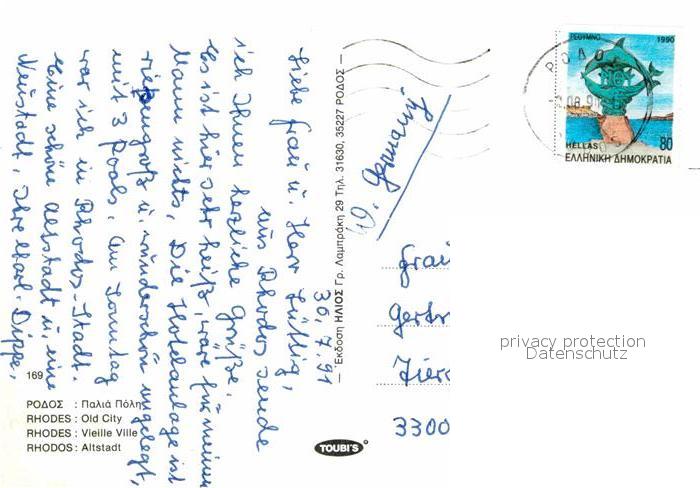 30.7.91
Liebe Frau u. Herr Lüttig,
aus Rhodos sende
ich Ihnen herzliche Grüße.
Es ist hier sehr heiß, wäre für meinen
Mann nichts. Die Hotelanlage ist
riesengroß u. wunderschön angelegt,
mit 3 Pools. Am Sonntag
war ich in Rhodos-Stadt.
Eine schöne Altstadt u. eine
Neustadt. Ihre
169
ΡΟΔΟΣ : Παλιά Πόλη
RHODES : Old City
RHODES : Vieille Ville
RHODOS : Altstadt
Έκδοση ΗΛΙΟΣ Γρ. Λαμπράκη 29 Τηλ. 31630, 35227 ΡΟΔΟΣ
TOUBI'S
W. Germany
Frau
Gertr
3300
ΡΕΘΥΜΝΟ 1990
HELLAS 80
ΕΛΛΗΝΙΚΗ ΔΗΜΟΚΡΑΤΙΑ
privacy protection
Datenschutz